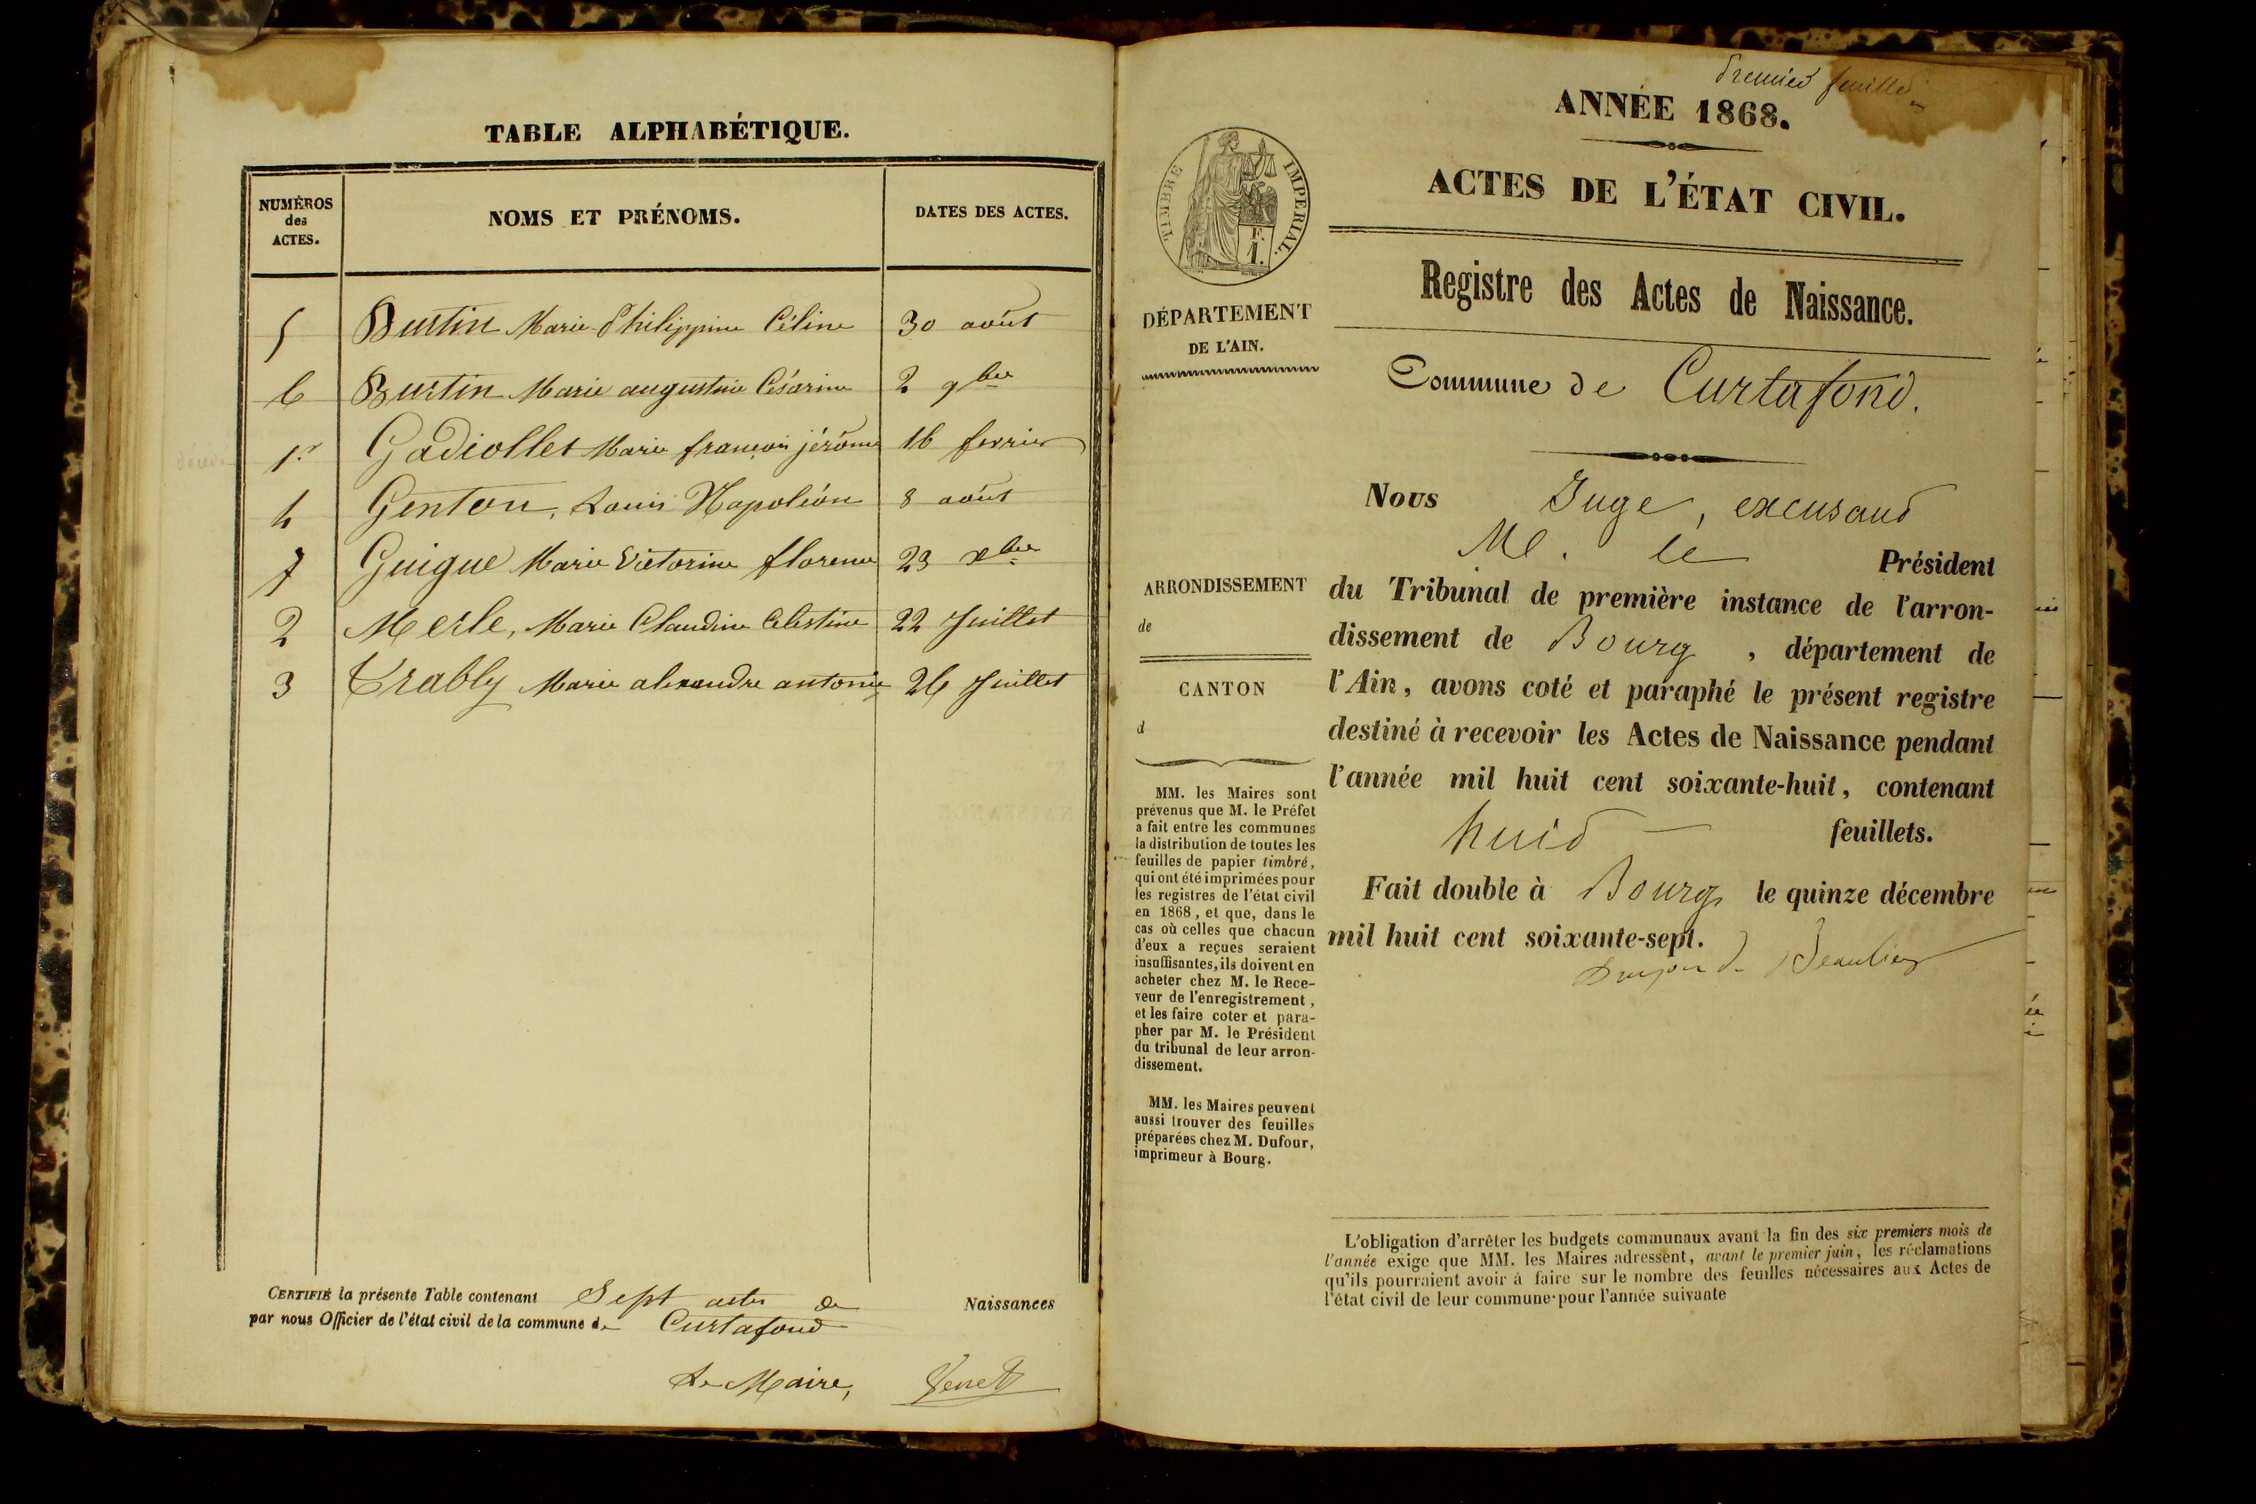 TABLE ALPHABÉTIQUE.
NUMÉROS des ACTES.
NOMS ET PRÉNOMS.
DATES DES ACTES.
5 Burtin Marie Philippine Céline 30 août
6 Burtin Marie augustine Césarine 2 9bre
1er Gadiollet Marie françois jérôme 16 fevrier
4 Genton, Louis Napoléon 8 août
7 Guigue Marie Victorine florence 23 xbre
2 Merle, Marie Claudine Celestine 22 Juillet
3 Trably Marie alexandre antonie 26 Juillet
CERTIFIÉ la présente Table contenant Sept actes de Naissances
par nous Officier de l'état civil de la commune de Curtafond
Le Maire,
Premier feuillet
ANNÉE 1868.
ACTES DE L'ÉTAT CIVIL.
Registre des Actes de Naissance.
Commune de Curtafond.
TIMBRE IMPERIAL.
F.
1.
DÉPARTEMENT
DE L'AIN.
ARRONDISSEMENT
de
CANTON
d
MM. les Maires sont
prévenus que M. le Préfet
a fait entre les communes
la distribution de toutes les
feuilles de papier timbré,
qui ont été imprimées pour
les registres de l'état civil
en 1868, et que, dans le
cas où celles que chacun
d'eux a reçues seraient
insuffisantes, ils doivent en
acheter chez M. le Rece-
veur de l'enregistrement,
et les faire coter et para-
pher par M. le Président
du tribunal de leur arron-
dissement.
MM. les Maires peuvent
aussi trouver des feuilles
préparées chez M. Dufour,
imprimeur à Bourg.
Nous Juge, excusant
M. le Président
du Tribunal de première instance de l'arron-
dissement de Bourg, département de
l'Ain, avons coté et paraphé le présent registre
destiné à recevoir les Actes de Naissance pendant
l'année mil huit cent soixante-huit, contenant
huit feuillets.
Fait double à Bourg le quinze décembre
mil huit cent soixante-sept.
Beaulieu
L'obligation d'arrêter les budgets communaux avant la fin des six premiers mois de
l'année exige que MM. les Maires adressent, avant le premier juin, les réclamations
qu'ils pourraient avoir à faire sur le nombre des feuilles nécessaires aux Actes de
l'état civil de leur commune pour l'année suivante